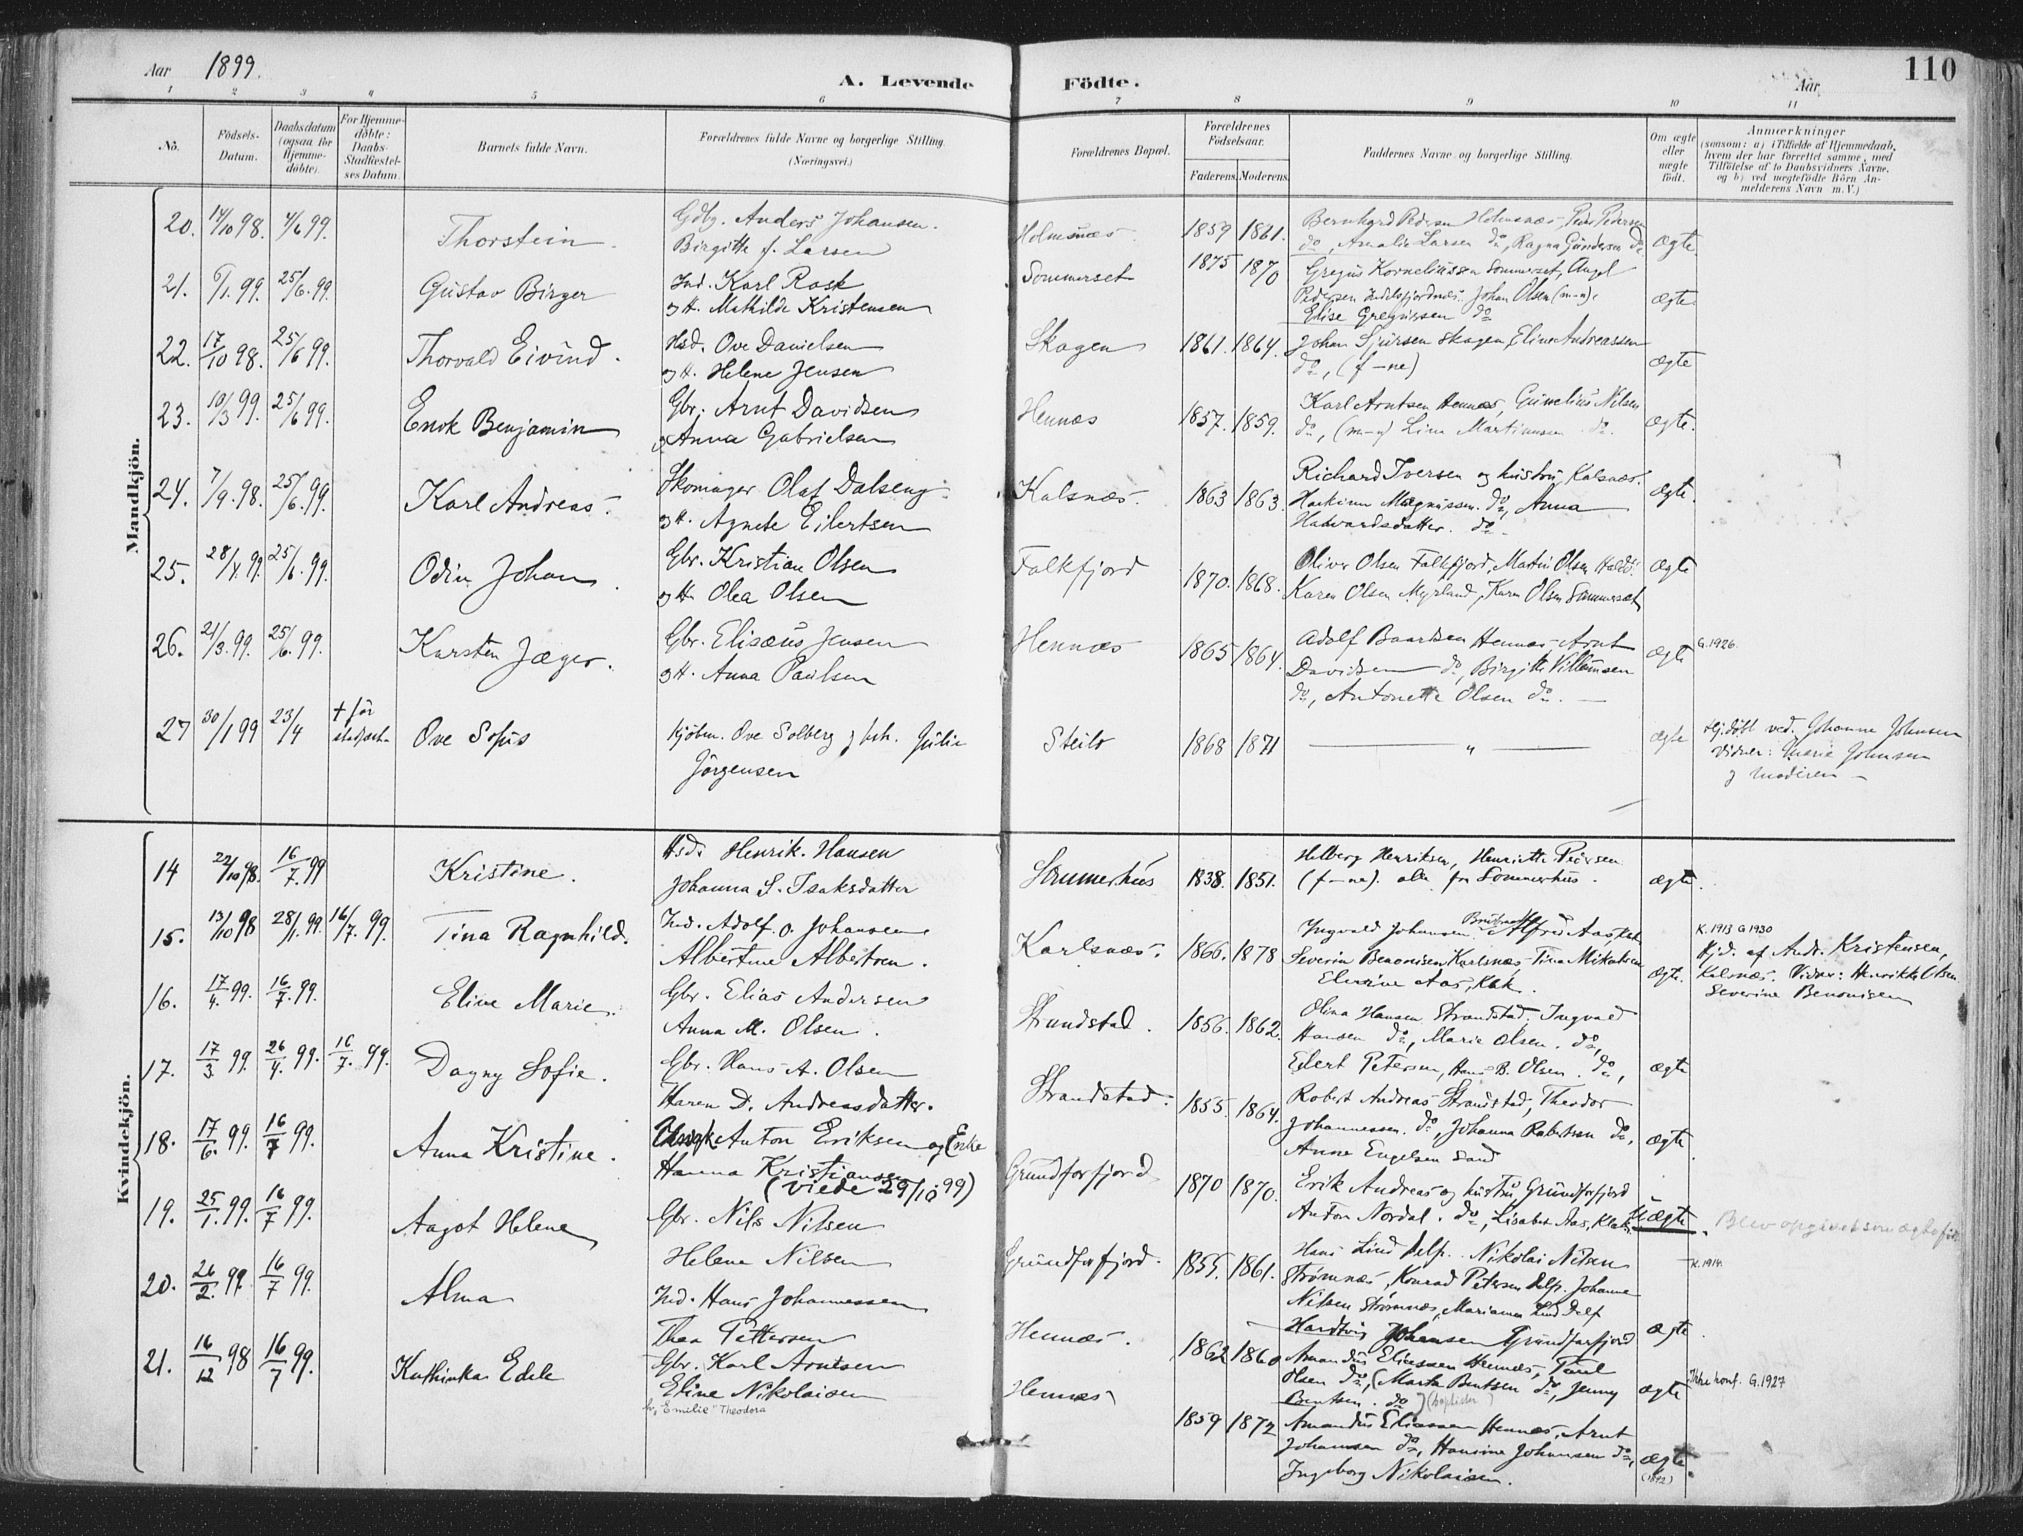 Aar 1899.
A. Levende Födte.
Aar
110
1 2 3 4 5 6 7 8 9 10 11
No.
Födsels-Datum.
Daabsdatum (ogsaa for Hjemme-döbte).
For Hjemme-döbte: Daabs-Stadfæstel-ses Datum.
Barnets fulde Navn.
Forældrenes fulde Navne og borgerlige Stilling. (Næringsvei.)
Forældrenes Bopæl.
Forældrenes Födselsaar.
Faderens. Moderens.
Faddernes Navne og borgerlige Stilling.
Om ægte eller uægte födt.
Anmærkninger
(saasom: a) i Tilfælde af Hjemmedaab, hvem der har forrettet samme, med Tilföielse af to Daabsvidners Navne, og b) ved uægtefödte Börn An-melderens Navn m. V.)
Mandkjön.
20. 14/10 98. 4/6 99. Thorstein. Gdbr. Anders Johansen. Holmsnæs 1859 1861. Bernhard Pedersen Holmsnæs, Peder Pedersen
Birgitte f. Larsen do, Amalie Larsen do, Ragna Gundersen do ægte
21. 6/1. 99. 25/6. 99. Gustav Birger Ind. Karl Rask Sommerset 1875 1870 Gregus Korneliussen Sommerset, Angel
og H. Mathilde Kristensen Pedersen Indrefjordnæs. Johan Olsen (m-n), ægte
Elise Gregussen do
22. 17/10 98. 25/6 99. Thorvald Eivind. Hsd. Ove Danielsen Skogen 1861. 1864. Johan Sjursen Skogen, Eline Andreassen
og H. Helene Jensen do, (f-ne) ægte
23. 10/3 99. 25/6 99. Enok Benjamin Gbr. Arnt Davidsen Hennæs 1857. 1859. Karl Arntsen Hennæs, Gunelius Nilsen
og Anna Gabrielsen do, (m-n) Lina Martinussen do. ægte.
24. 7/9. 98. 25/6. 99. Karl Andreas. Skomager Olaf Dalseng. Kalsnæs. 1863 1863. Richard Iversen og hustru, Kalsnæs. ægte.
og H. Agnete Eilertsen Haakinn Magnussen. do, Anna
Halvardsdatter. do.
25. 28/4. 99. 25/6. 99. Odin Johan. Gbr. Kristian Olsen Falkfjord 1870. 1868. Oliver Olsen Falkfjord, Martin Olsen ægte
og H. Olea Olsen Karen Olsen Myrland, Karen Olsen Sommerset
26. 21/3. 99. 25/6. 99. Karsten Jæger. Gbr. Elisæus Jensen Hennæs 1865 1864. Adolf Baartsen Hennæs, Arnt ægte G. 1926.
og H. Anna Paulsen Davidsen do, Birgitte Villumsen
do, Antonette Olsen do. —
27 30/1 99 23/4 † før stadfæst. Ove Sofus Kjøbm. Ove Solberg og h. Julie Steilo 1868 1871 — " — ægte Hj.døbt ved. Johanne Johnsen
Jörgensen Vidner: Marie Johnsen
og Moderen —
Kvindekjön.
14 22/10 98. 16/7. 99 Kristine. Hsd. Henrik. Hansen Sommerhus 1838. 1851. Helberg Henriksen, Henriette Pedersen
Johanna S. Isaksdatter (f-ne). alle fra Sommerhus. ægte.
15. 13/10 98 28/1. 99. 16/7. 99. Tina Ragnhild. Ind. Adolf. O. Johansen Karlsnæs. 1866. 1878 Ingvald Johansen. Alfred Aas, Klak K. 1913 G 1930
Albertine Albertsen. Severin Benonisen Karlsnæs, Tina Mikalsen ægte. Hjd. af Andr. Kristensen,
Elevine Aas, Klak. Kalsnæs. Vidner: Henrikke Olsen
Severine Benonisen
16. 17/4. 99. 16/7. 99. Eline Marie. Gbr. Elias Andersen Strandstad. 1856. 1862. Olina Hansen Strandstad, Ingvald
Anna M. Olsen. Hansen do, Marie Olsen. do,
Edert Petersen, Hans B. Olsen. do, ægte
17. 17/3. 99. 26/4. 99. 16/7. 99. Dagny Sofie. Gbr. Hans A. Olsen Strandstad. 1855. 1864. Robert Andreas Strandstad, Theodor
Karen D. Andreasdatter. Johannessen. do, Johanna Robertsen do, ægte
Anne Engelsen Sand
18. 17/6. 99. 16/7 99. Anna Kristine. Ungk. Anton Eriksen og (Enke Grundforfjord 1870 1870. Erik Andreas og hustru, Grundforfjord
Hanna Kristiansen Anton Nordal. do, Lisabet Aas, Klak uægte. Blev opgivet som ægtefødt
(viede 29/10 99)
19. 25/1. 99. 16/7 99. Aagot Helene Gbr. Nils Nilsen Grundforfjord. 1855. 1861. Hans Lind Delp. Nikolai Nilsen K. 1914.
Helene Nilsen Strømnæs, Konrad Petersen Delp. Johanne
Nilsen Strømnæs, Marianna Lind Delp ægte.
20. 26/2. 99. 16/7 99. Alma Ind. Hans Johannessen Hennæs. 1862 1860 Hardtvig Johansen Grundforfjord
Thea Pettersen Amandus Eliassen Hennæs,
Olsen do, (Marta Bentsen do, Jenny ægte Ikke konf. G. 1927
Bentsen. do) (baptister)
21. 16/12 98 16/7 99. Kathinka Edele Gbr. Karl Arntsen Hennæs 1859 1872 Amandus Eliassen Hennæs, Arnt
Eline Nikolaisen Johansen do, Hansine Johansen do, ægte.
"Emilie" Theodora Ingeborg Nikolaisen. (1872)